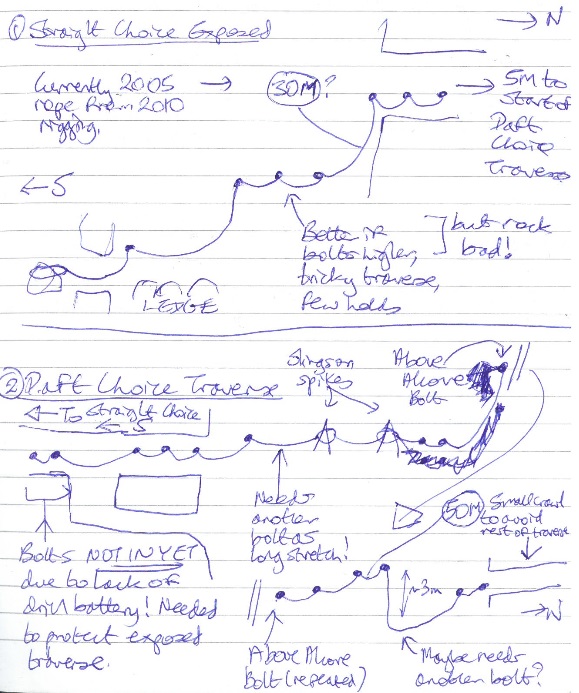 ① Straight Choice Exposed
→ N
Currently 2005 →
rope from 2010
rigging.
30M?
→ 5M to
start of
Daft
Choice
Traverse
← S
Better if
bolts higher,
tricky traverse,
few holds
but rock
bad!
LEDGE
② Daft Choice Traverse
← To Straight Choice
← S
Slings on
spikes
Above
Alcove
Bolt
Needs
another
bolt as
long stretch!
50M
Small crawl
to avoid
rest of traverse
Bolts NOT IN YET
due to lack of
drill battery! Needed
to protect exposed
traverse.
~3m
→ N
Above Alcove
Bolt (repeated)
Maybe needs
another bolt?